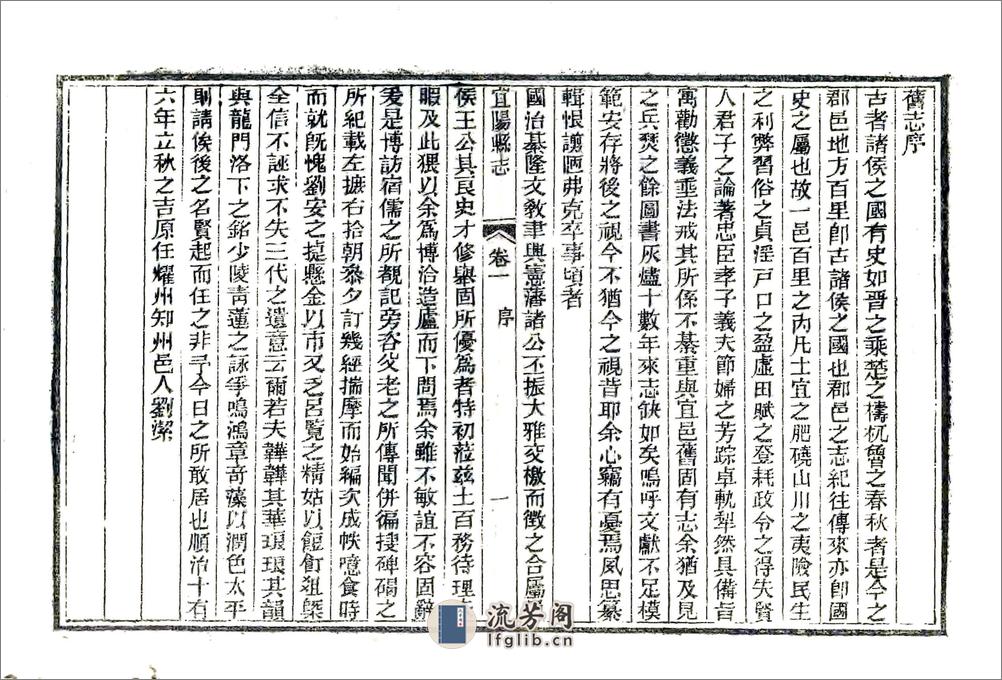 舊志序
古者諸侯之國有史如晉之乘楚之檮杌魯之春秋者是今之
郡邑地方百里卽古諸侯之國也郡邑之志紀往傳來亦卽國
史之屬也故一邑百里之內凡土宜之肥磽山川之夷險民生
之利弊習俗之貞淫戸口之盈虛田賦之登耗政令之得失賢
人君子之論著忠臣孝子義夫節婦之芳踪卓軌犁然具備旨
寓勸懲義垂法戒其所係不綦重與宜邑舊固有志余猶及見
之兵焚之餘圖書灰燼十數年來志缺如矣嗚呼文獻不足模
範安存將後之視今不猶今之視昔耶余心竊有憂焉夙思纂
輯恨譾陋弗克卒事頃者
國治綦隆文敎聿興憲藩諸公丕振大雅交檄而徵之合屬
宜陽縣志
卷一
序
一
侯王公其良史才修舉固所優爲者特初蒞茲土百務待理
暇及此猥以余爲博洽造廬而下問焉余雖不敏誼不容固辭
爰是博訪宿儒之所覩記旁咨父老之所傳聞併徧搜碑碣之
所紀載左摭右拾朝叅夕訂幾經揣摩而始編次成帙噫食時
而就旣愧劉安之㨗懸金以市又乏呂覽之精姑以餖飣俎槩
全信不誣求不失三代之遺意云爾若夫韡韡其華琅琅其韻
與龍門洛下之銘少陵靑蓮之詠爭鳴鴻章奇藻以潤色太平
則請俟後之名賢起而任之非予今日之所敢居也順治十有
六年立秋之吉原任耀州知州邑人劉潔
流芳阁
lfglib.cn